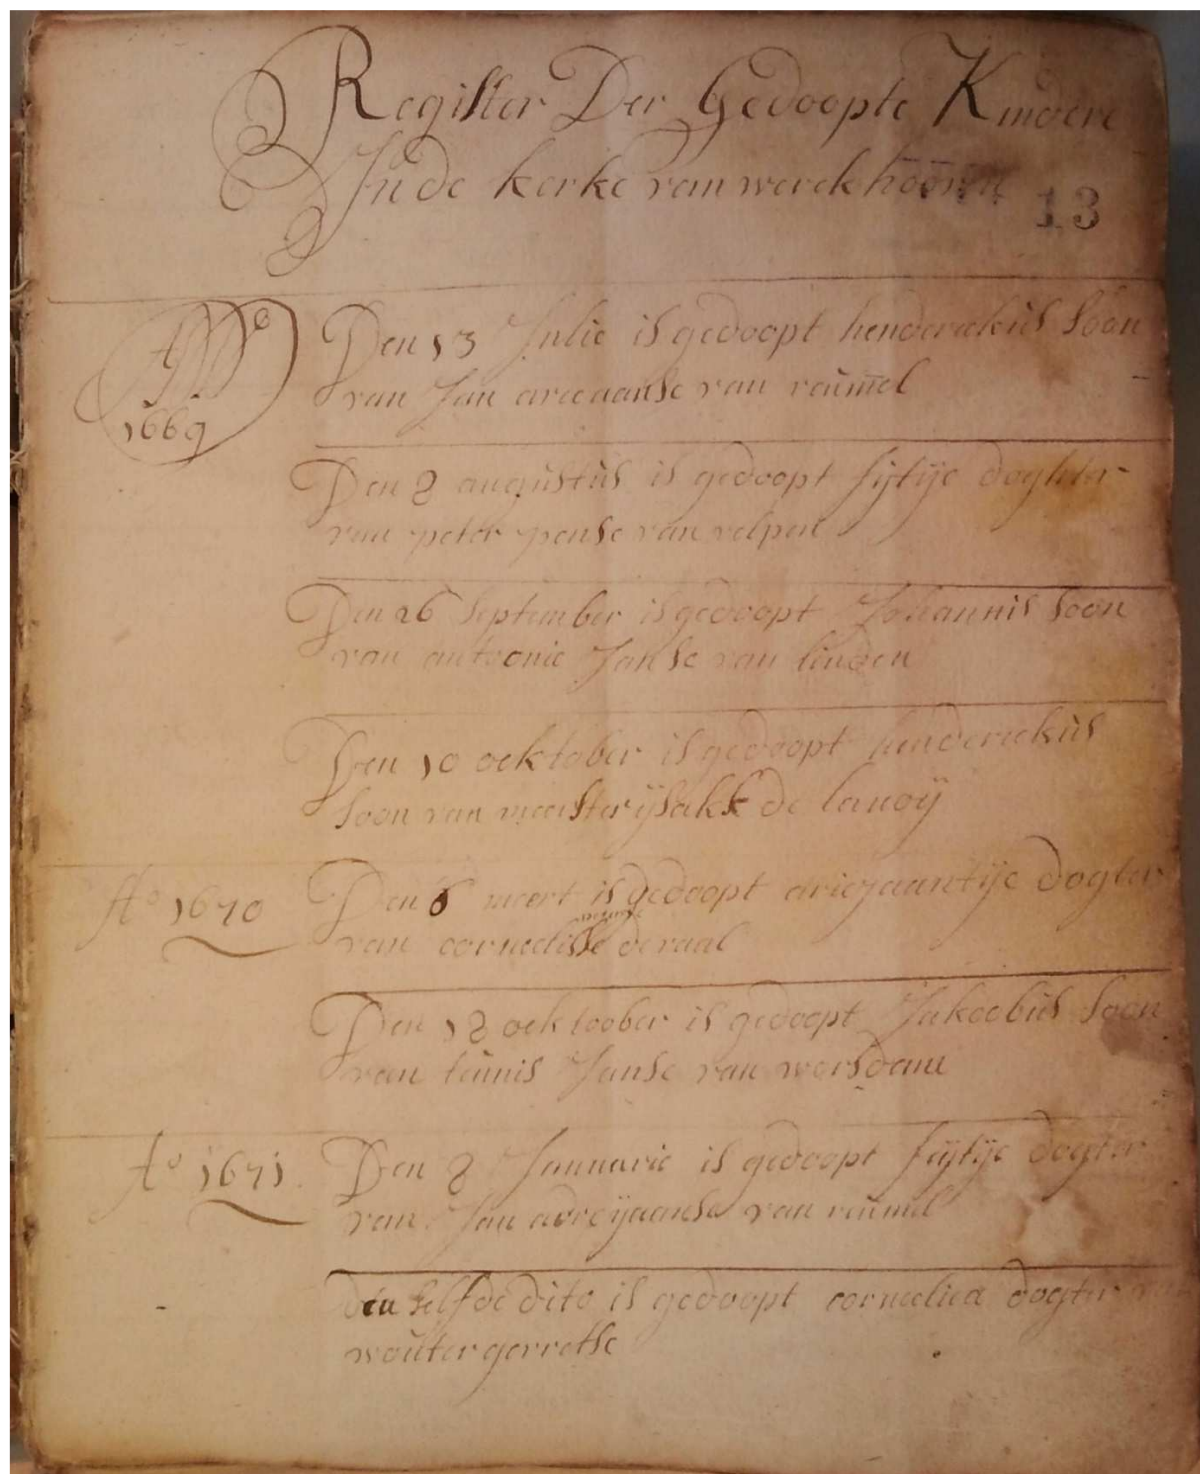 Register Der Gedoopte Kindere
In de kerke van werckhooven
13
Ao
1669
Den 13 Julie is gedoopt henderickus Soon
van Jan areeaanse van rūmel
Den 8 augustus is gedoopt fijtije doghter
van peter pense van velpen
Den 26 September is gedoopt Johannis Soon
van antoonie Janse van linden
Den 10 ocktober is gedoopt henderickus
Soon van meester ijsakk de lanoij
Ao 1670
Den 6 meert is gedoopt ariejaantije dogter
van cornelisse de raal
Den 18 ocktoober is gedoopt Jakoobus Soon
van tunis Janse van worsdam
Ao 1671
Den 8 Jannuarie is gedoopt fijtije dogter
van Jan adreijaanse van rumel
den selfde dito is gedoopt cornelica dogter van
wouter gerretse